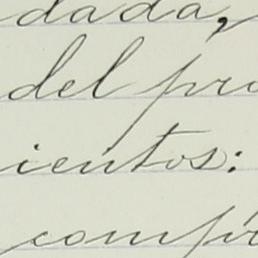 dada,
del pro
ientos:
comp